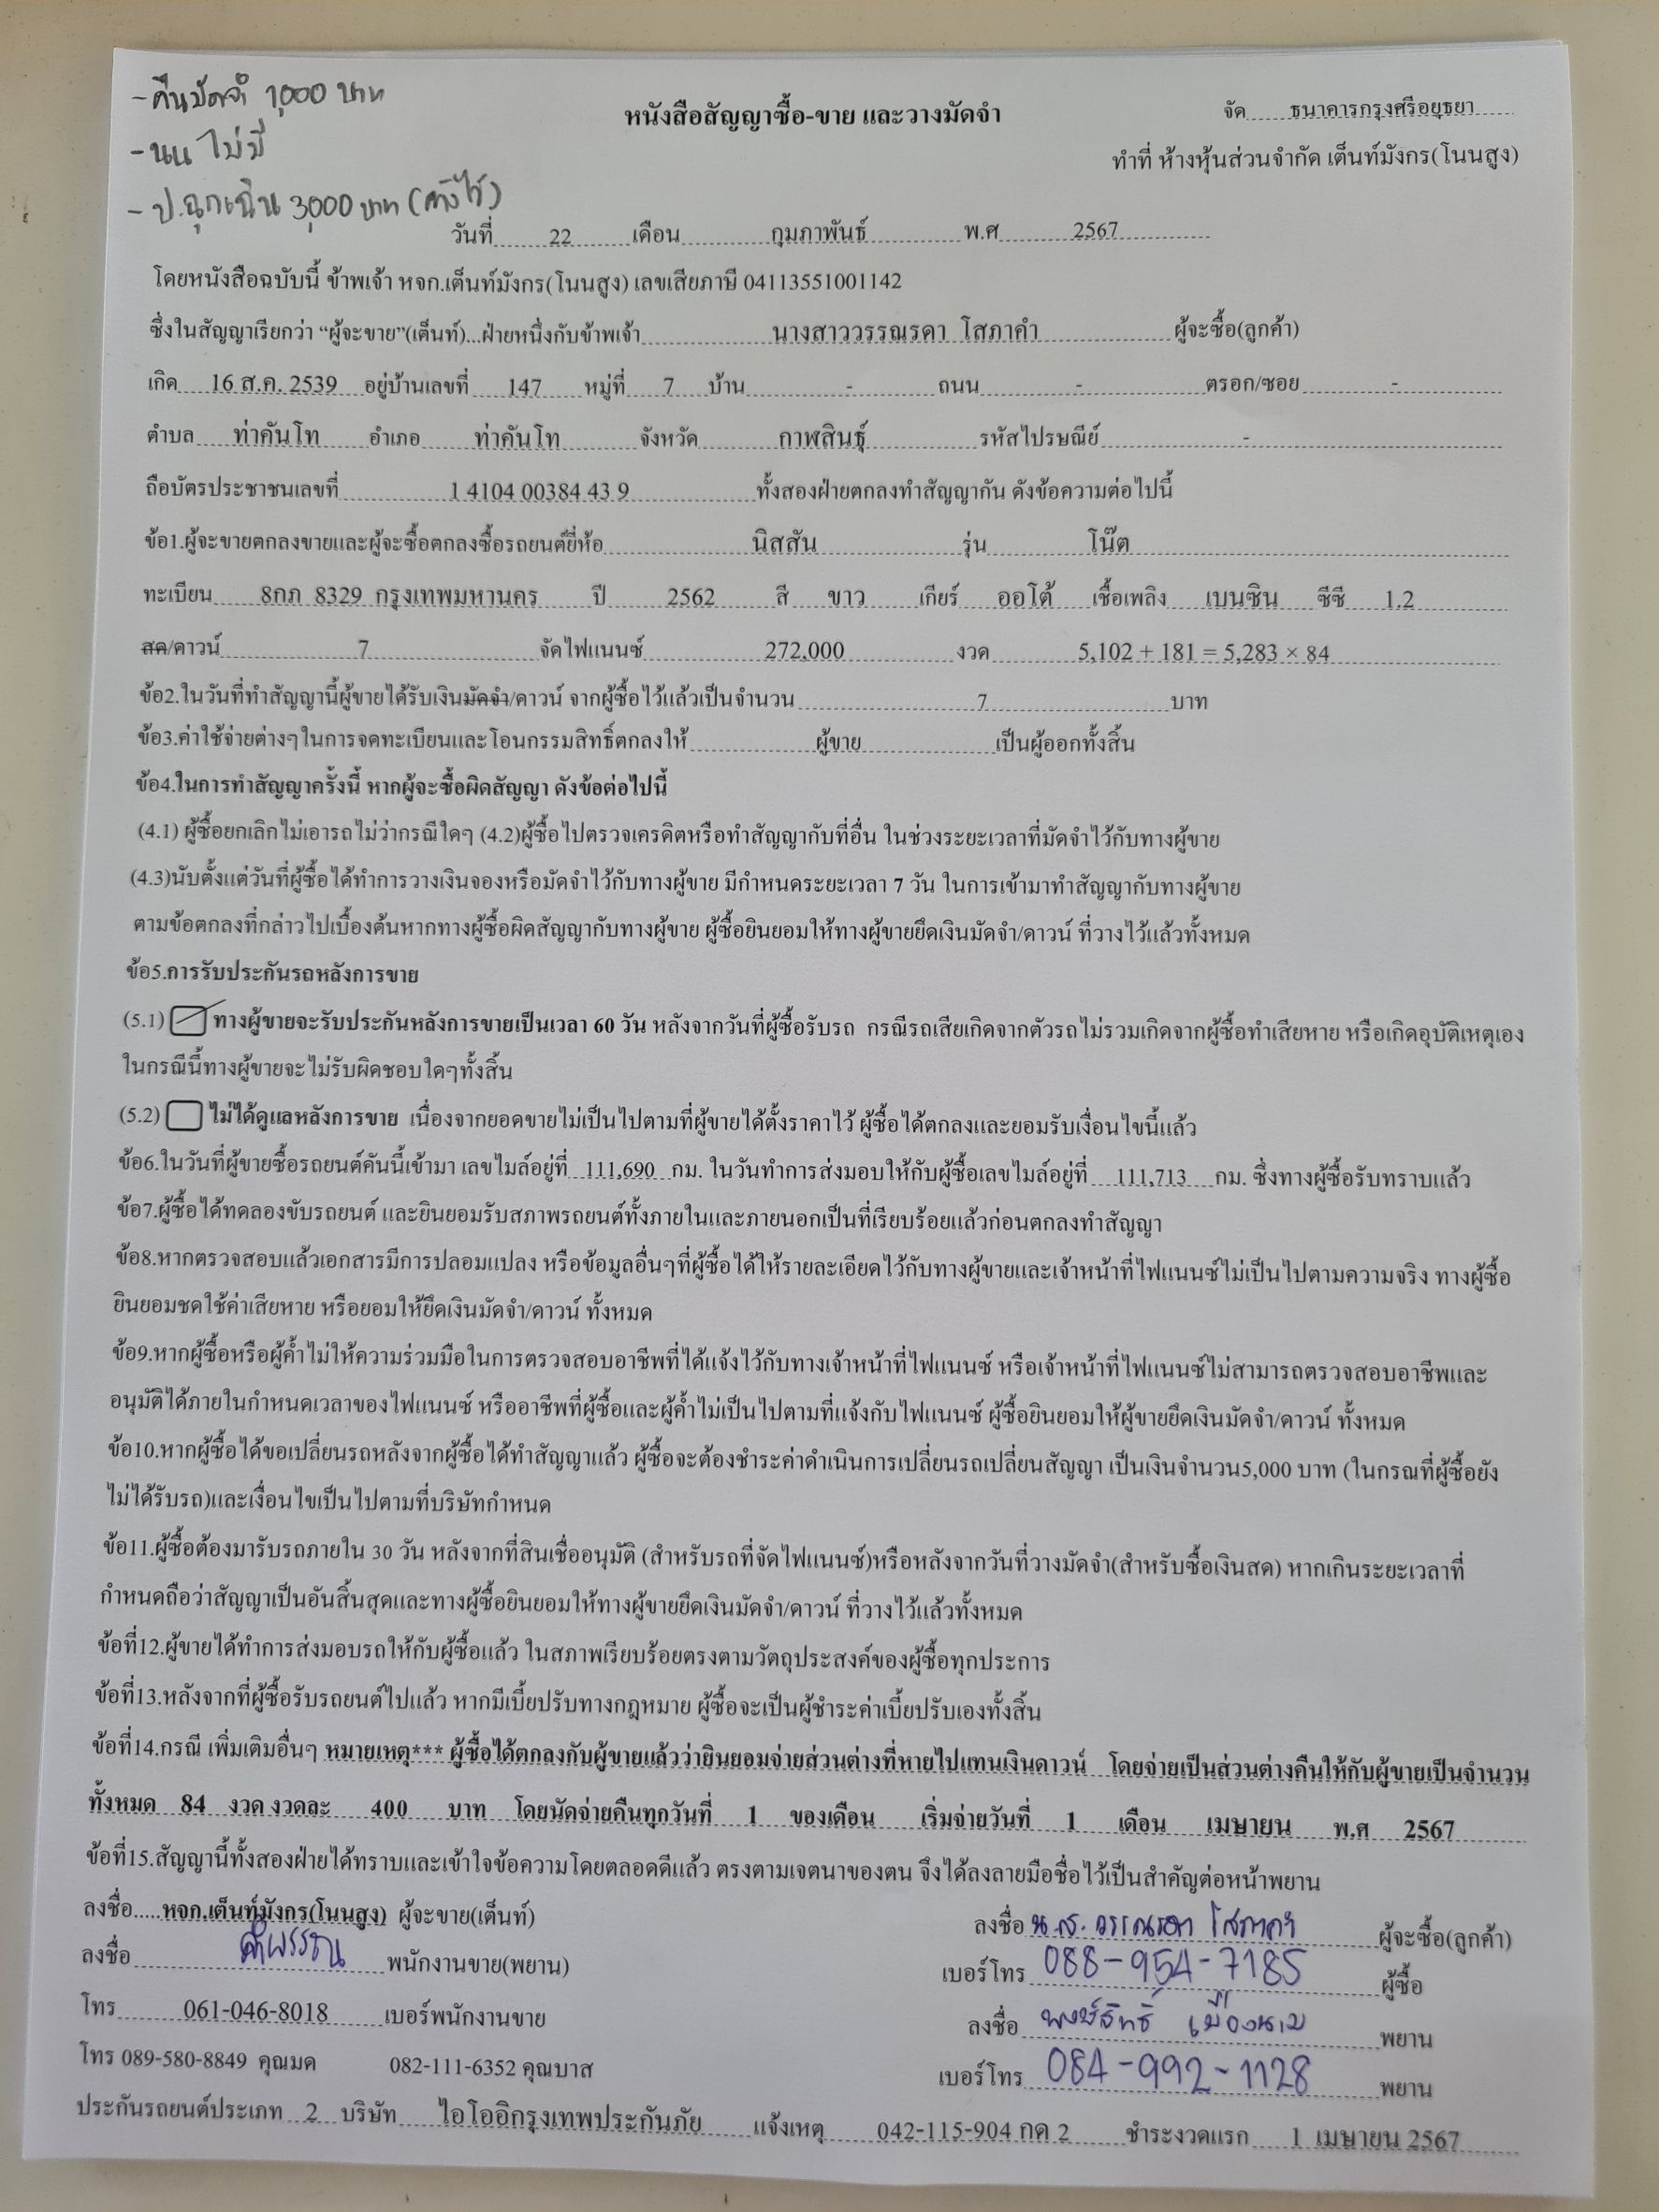 -คืนมัดจำ 1,000 บาท
หนังสือสัญญาซื้อ-ขาย และวางมัดจำ
จัด ธนาคารกรุงศรีอยุธยา
-นน ไม่มี
ทำที่ ห้างหุ้นส่วนจำกัด เต็นท์มังกร(โนนสูง)
- ป.ฉุกเฉิน 3,000 บาท (ค้างไว้)
วันที่ 22 เดือน กุมภาพันธ์ พ.ศ 2567
โดยหนังสือฉบับนี้ ข้าพเจ้า หจก.เต็นท์มังกร(โนนสูง) เลขเสียภาษี 04113551001142
ซึ่งในสัญญาเรียกว่า “ผู้จะขาย”(เต็นท์)...ฝ่ายหนึ่งกับข้าพเจ้า นางสาววรรณรดา โสภาคำ ผู้จะซื้อ(ลูกค้า)
เกิด 16 ส.ค. 2539 อยู่บ้านเลขที่ 147 หมู่ที่ 7 บ้าน - ถนน - ตรอก/ซอย -
ตำบล ท่าคันโท อำเภอ ท่าคันโท จังหวัด กาฬสินธุ์ รหัสไปรษณีย์ -
ถือบัตรประชาชนเลขที่ 1 4104 00384 43 9 ทั้งสองฝ่ายตกลงทำสัญญากัน ดังข้อความต่อไปนี้
ข้อ1.ผู้จะขายตกลงขายและผู้จะซื้อตกลงซื้อรถยนต์ยี่ห้อ นิสสัน รุ่น โน๊ต
ทะเบียน 8กภ 8329 กรุงเทพมหานคร ปี 2562 สี ขาว เกียร์ ออโต้ เชื้อเพลิง เบนซิน ซีซี 1.2
สด/ดาวน์ 7 จัดไฟแนนซ์ 272,000 งวด 5,102 + 181 = 5,283 × 84
ข้อ2.ในวันที่ทำสัญญานี้ผู้ขายได้รับเงินมัดจำ/ดาวน์ จากผู้ซื้อไว้แล้วเป็นจำนวน 7 บาท
ข้อ3.ค่าใช้จ่ายต่างๆในการจดทะเบียนและโอนกรรมสิทธิ์ตกลงให้ ผู้ขาย เป็นผู้ออกทั้งสิ้น
ข้อ4.ในการทำสัญญาครั้งนี้ หากผู้จะซื้อผิดสัญญา ดังข้อต่อไปนี้
(4.1) ผู้ซื้อยกเลิกไม่เอารถไม่ว่ากรณีใดๆ (4.2)ผู้ซื้อไปตรวจเครดิตหรือทำสัญญากับที่อื่น ในช่วงระยะเวลาที่มัดจำไว้กับทางผู้ขาย
(4.3)นับตั้งแต่วันที่ผู้ซื้อได้ทำการวางเงินจองหรือมัดจำไว้กับทางผู้ขาย มีกำหนดระยะเวลา 7 วัน ในการเข้ามาทำสัญญากับทางผู้ขาย
ตามข้อตกลงที่กล่าวไปเบื้องต้นหากทางผู้ซื้อผิดสัญญากับทางผู้ขาย ผู้ซื้อยินยอมให้ทางผู้ขายยึดเงินมัดจำ/ดาวน์ ที่วางไว้แล้วทั้งหมด
ข้อ5.การรับประกันรถหลังการขาย
(5.1) ทางผู้ขายจะรับประกันหลังการขายเป็นเวลา 60 วัน หลังจากวันที่ผู้ซื้อรับรถ กรณีรถเสียเกิดจากตัวรถไม่รวมเกิดจากผู้ซื้อทำเสียหาย หรือเกิดอุบัติเหตุเอง
ในกรณีนี้ทางผู้ขายจะไม่รับผิดชอบใดๆทั้งสิ้น
(5.2) ไม่ได้ดูแลหลังการขาย เนื่องจากยอดขายไม่เป็นไปตามที่ผู้ขายได้ตั้งราคาไว้ ผู้ซื้อได้ตกลงและยอมรับเงื่อนไขนี้แล้ว
ข้อ6.ในวันที่ผู้ขายซื้อรถยนต์คันนี้เข้ามา เลขไมล์อยู่ที่ 111,690 กม. ในวันทำการส่งมอบให้กับผู้ซื้อเลขไมล์อยู่ที่ 111,713 กม. ซึ่งทางผู้ซื้อรับทราบแล้ว
ข้อ7.ผู้ซื้อได้ทดลองขับรถยนต์ และยินยอมรับสภาพรถยนต์ทั้งภายในและภายนอกเป็นที่เรียบร้อยแล้วก่อนตกลงทำสัญญา
ข้อ8.หากตรวจสอบแล้วเอกสารมีการปลอมแปลง หรือข้อมูลอื่นๆที่ผู้ซื้อได้ให้รายละเอียดไว้กับทางผู้ขายและเจ้าหน้าที่ไฟแนนซ์ไม่เป็นไปตามความจริง ทางผู้ซื้อ
ยินยอมชดใช้ค่าเสียหาย หรือยอมให้ยึดเงินมัดจำ/ดาวน์ ทั้งหมด
ข้อ9.หากผู้ซื้อหรือผู้ค้ำไม่ให้ความร่วมมือในการตรวจสอบอาชีพที่ได้แจ้งไว้กับทางเจ้าหน้าที่ไฟแนนซ์ หรือเจ้าหน้าที่ไฟแนนซ์ไม่สามารถตรวจสอบอาชีพและ
อนุมัติได้ภายในกำหนดเวลาของไฟแนนซ์ หรืออาชีพที่ผู้ซื้อและผู้ค้ำไม่เป็นไปตามที่แจ้งกับไฟแนนซ์ ผู้ซื้อยินยอมให้ผู้ขายยึดเงินมัดจำ/ดาวน์ ทั้งหมด
ข้อ10.หากผู้ซื้อได้ขอเปลี่ยนรถหลังจากผู้ซื้อได้ทำสัญญาแล้ว ผู้ซื้อจะต้องชำระค่าดำเนินการเปลี่ยนรถเปลี่ยนสัญญา เป็นเงินจำนวน5,000 บาท (ในกรณที่ผู้ซื้อยัง
ไม่ได้รับรถ)และเงื่อนไขเป็นไปตามที่บริษัทกำหนด
ข้อ11.ผู้ซื้อต้องมารับรถภายใน 30 วัน หลังจากที่สินเชื่ออนุมัติ (สำหรับรถที่จัดไฟแนนซ์)หรือหลังจากวันที่วางมัดจำ(สำหรับซื้อเงินสด) หากเกินระยะเวลาที่
กำหนดถือว่าสัญญาเป็นอันสิ้นสุดและทางผู้ซื้อยินยอมให้ทางผู้ขายยึดเงินมัดจำ/ดาวน์ ที่วางไว้แล้วทั้งหมด
ข้อที่12.ผู้ขายได้ทำการส่งมอบรถให้กับผู้ซื้อแล้ว ในสภาพเรียบร้อยตรงตามวัตถุประสงค์ของผู้ซื้อทุกประการ
ข้อที่13.หลังจากที่ผู้ซื้อรับรถยนต์ไปแล้ว หากมีเบี้ยปรับทางกฎหมาย ผู้ซื้อจะเป็นผู้ชำระค่าเบี้ยปรับเองทั้งสิ้น
ข้อที่14.กรณี เพิ่มเติมอื่นๆ หมายเหตุ*** ผู้ซื้อได้ตกลงกับผู้ขายแล้วว่ายินยอมจ่ายส่วนต่างที่หายไปแทนเงินดาวน์ โดยจ่ายเป็นส่วนต่างคืนให้กับผู้ขายเป็นจำนวน
ทั้งหมด 84 งวด งวดละ 400 บาท โดยนัดจ่ายคืนทุกวันที่ 1 ของเดือน เริ่มจ่ายวันที่ 1 เดือน เมษายน พ.ศ 2567
ข้อที่15.สัญญานี้ทั้งสองฝ่ายได้ทราบและเข้าใจข้อความโดยตลอดดีแล้ว ตรงตามเจตนาของตน จึงได้ลงลายมือชื่อไว้เป็นสำคัญต่อหน้าพยาน
ลงชื่อ.....หจก.เต็นท์มังกร(โนนสูง) ผู้จะขาย(เต็นท์)
ลงชื่อ น.ส. วรรณรดา โสภาคำ ผู้จะซื้อ(ลูกค้า)
ลงชื่อ พนักงานขาย(พยาน)
เบอร์โทร 088-954-7185 ผู้ซื้อ
โทร 061-046-8018 เบอร์พนักงานขาย
ลงชื่อ พงษ์สิทธิ์ เมืองนาม พยาน
โทร 089-580-8849 คุณมด 082-111-6352 คุณบาส
เบอร์โทร 084-992-1128 พยาน
ประกันรถยนต์ประเภท 2 บริษัท ไอโออิกรุงเทพประกันภัย แจ้งเหตุ 042-115-904 กด 2 ชำระงวดแรก 1 เมษายน 2567